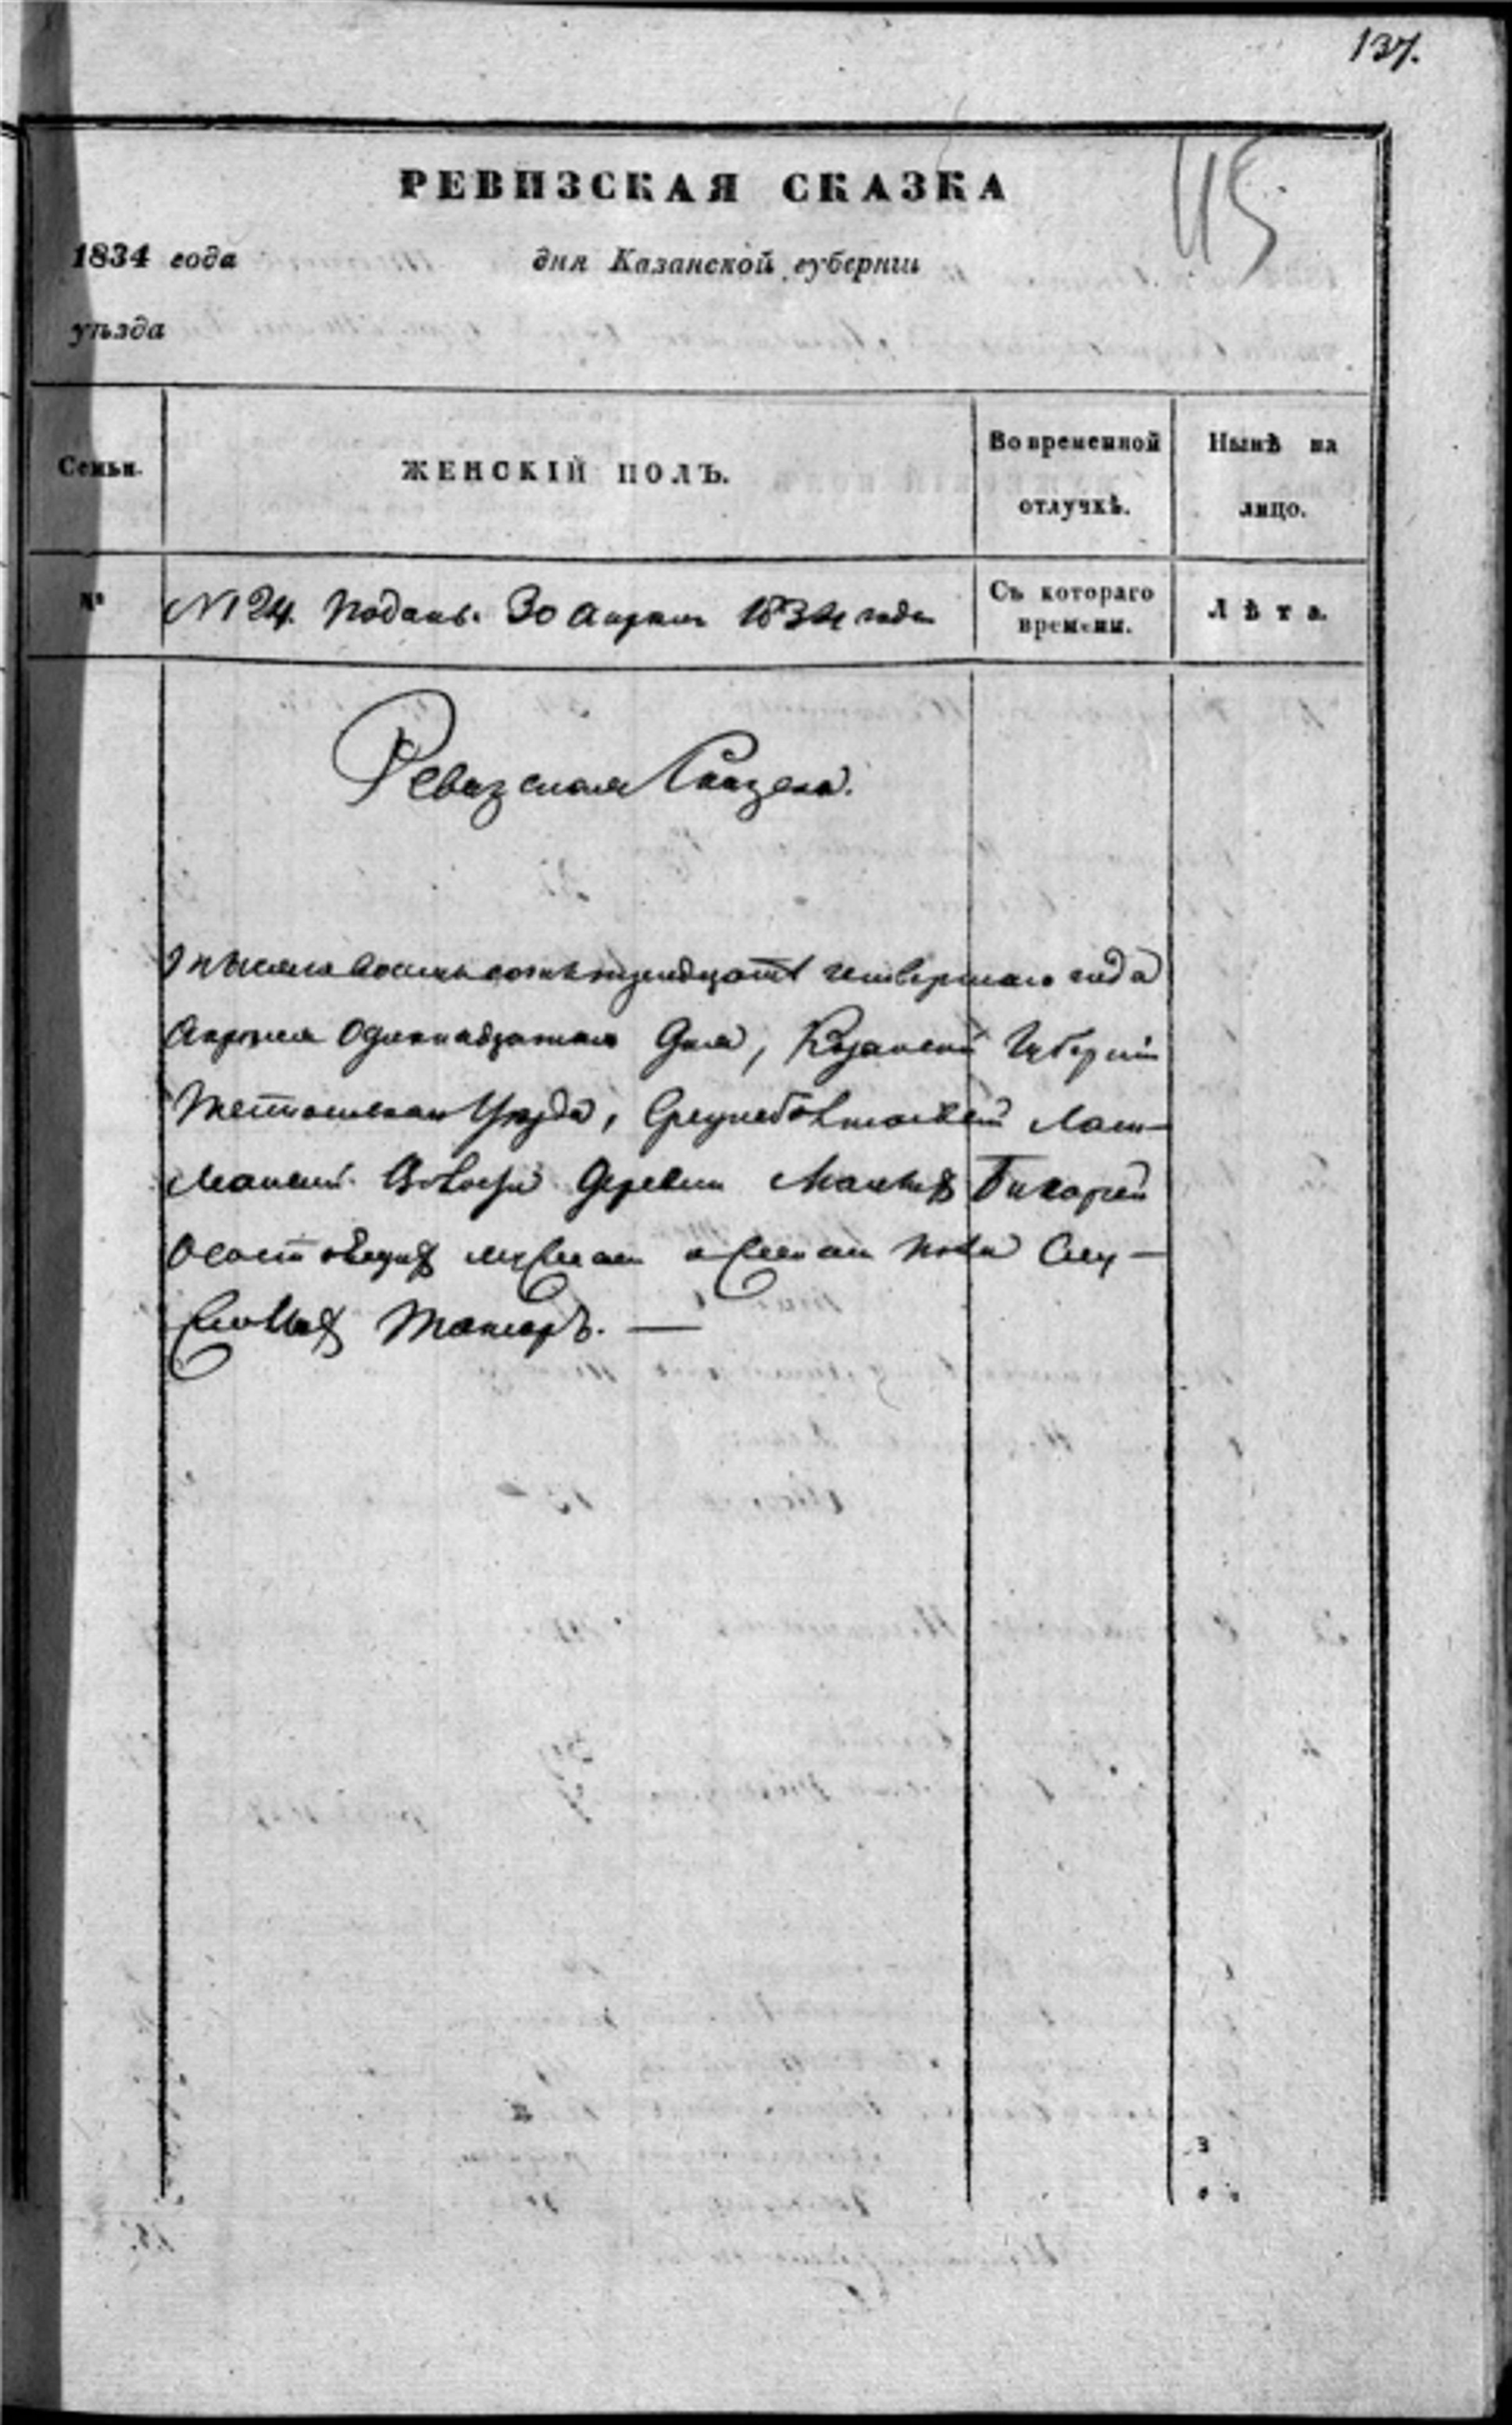 137.
45
РЕВИЗСКАЯ СКАЗКА
1834 года дня Казанской губернiи
уѣзда
Семьи.
ЖЕНСКIЙ ПОЛЪ.
Во временной отлучкѣ.
Нынѣ на лицо.
№
№ 24. Подана. 30 Апреля 1834 года
Съ котораго времени.
Лѣта.
Ревизская Сказка.
тысяча восемь сотъ тридцать четвертаго года
Апреля Одиннадцатаго Дня, Казанской Губернiи
Тетюшскаго Уезда, Лаш-
манской деревни Малыхъ
о
Татаръ. —